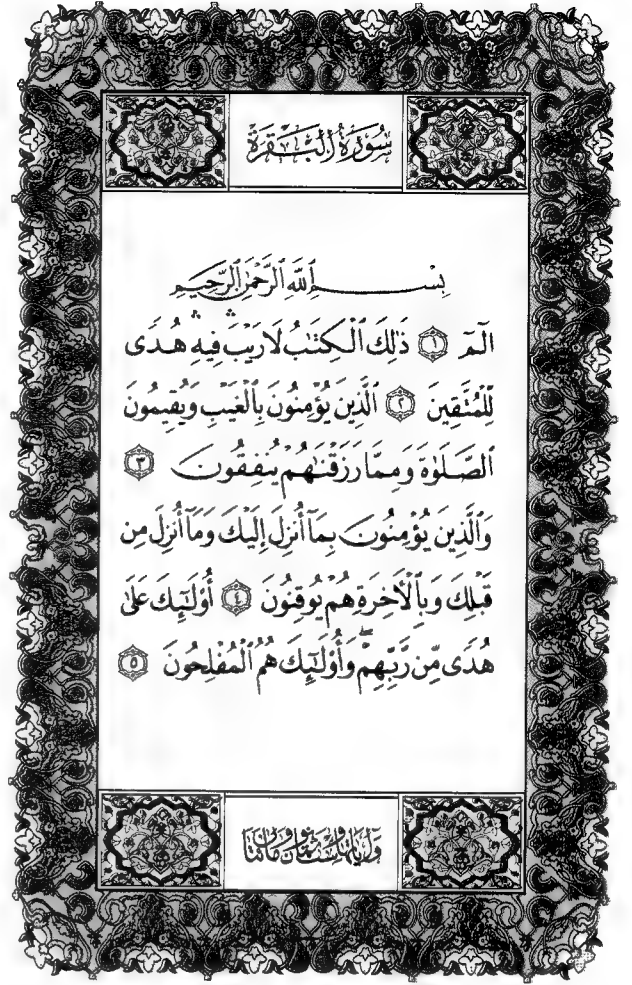 سُورَةُ الْبَقَرَةِ
بِسْمِ اللَّهِ الرَّحْمَٰنِ الرَّحِيمِ
الٓمٓ ١ ذَٰلِكَ الْكِتَٰبُ لَا رَيْبَ ۛ فِيهِ ۛ هُدًى
لِّلْمُتَّقِينَ ٢ الَّذِينَ يُؤْمِنُونَ بِالْغَيْبِ وَيُقِيمُونَ
الصَّلَوٰةَ وَمِمَّا رَزَقْنَٰهُمْ يُنفِقُونَ ٣
وَالَّذِينَ يُؤْمِنُونَ بِمَآ أُنزِلَ إِلَيْكَ وَمَآ أُنزِلَ مِن
قَبْلِكَ وَبِالْأَخِرَةِ هُمْ يُوقِنُونَ ٤ أُوْلَٰٓئِكَ عَلَىٰ
هُدًى مِّن رَّبِّهِمْ ۖ وَأُوْلَٰٓئِكَ هُمُ الْمُفْلِحُونَ ٥